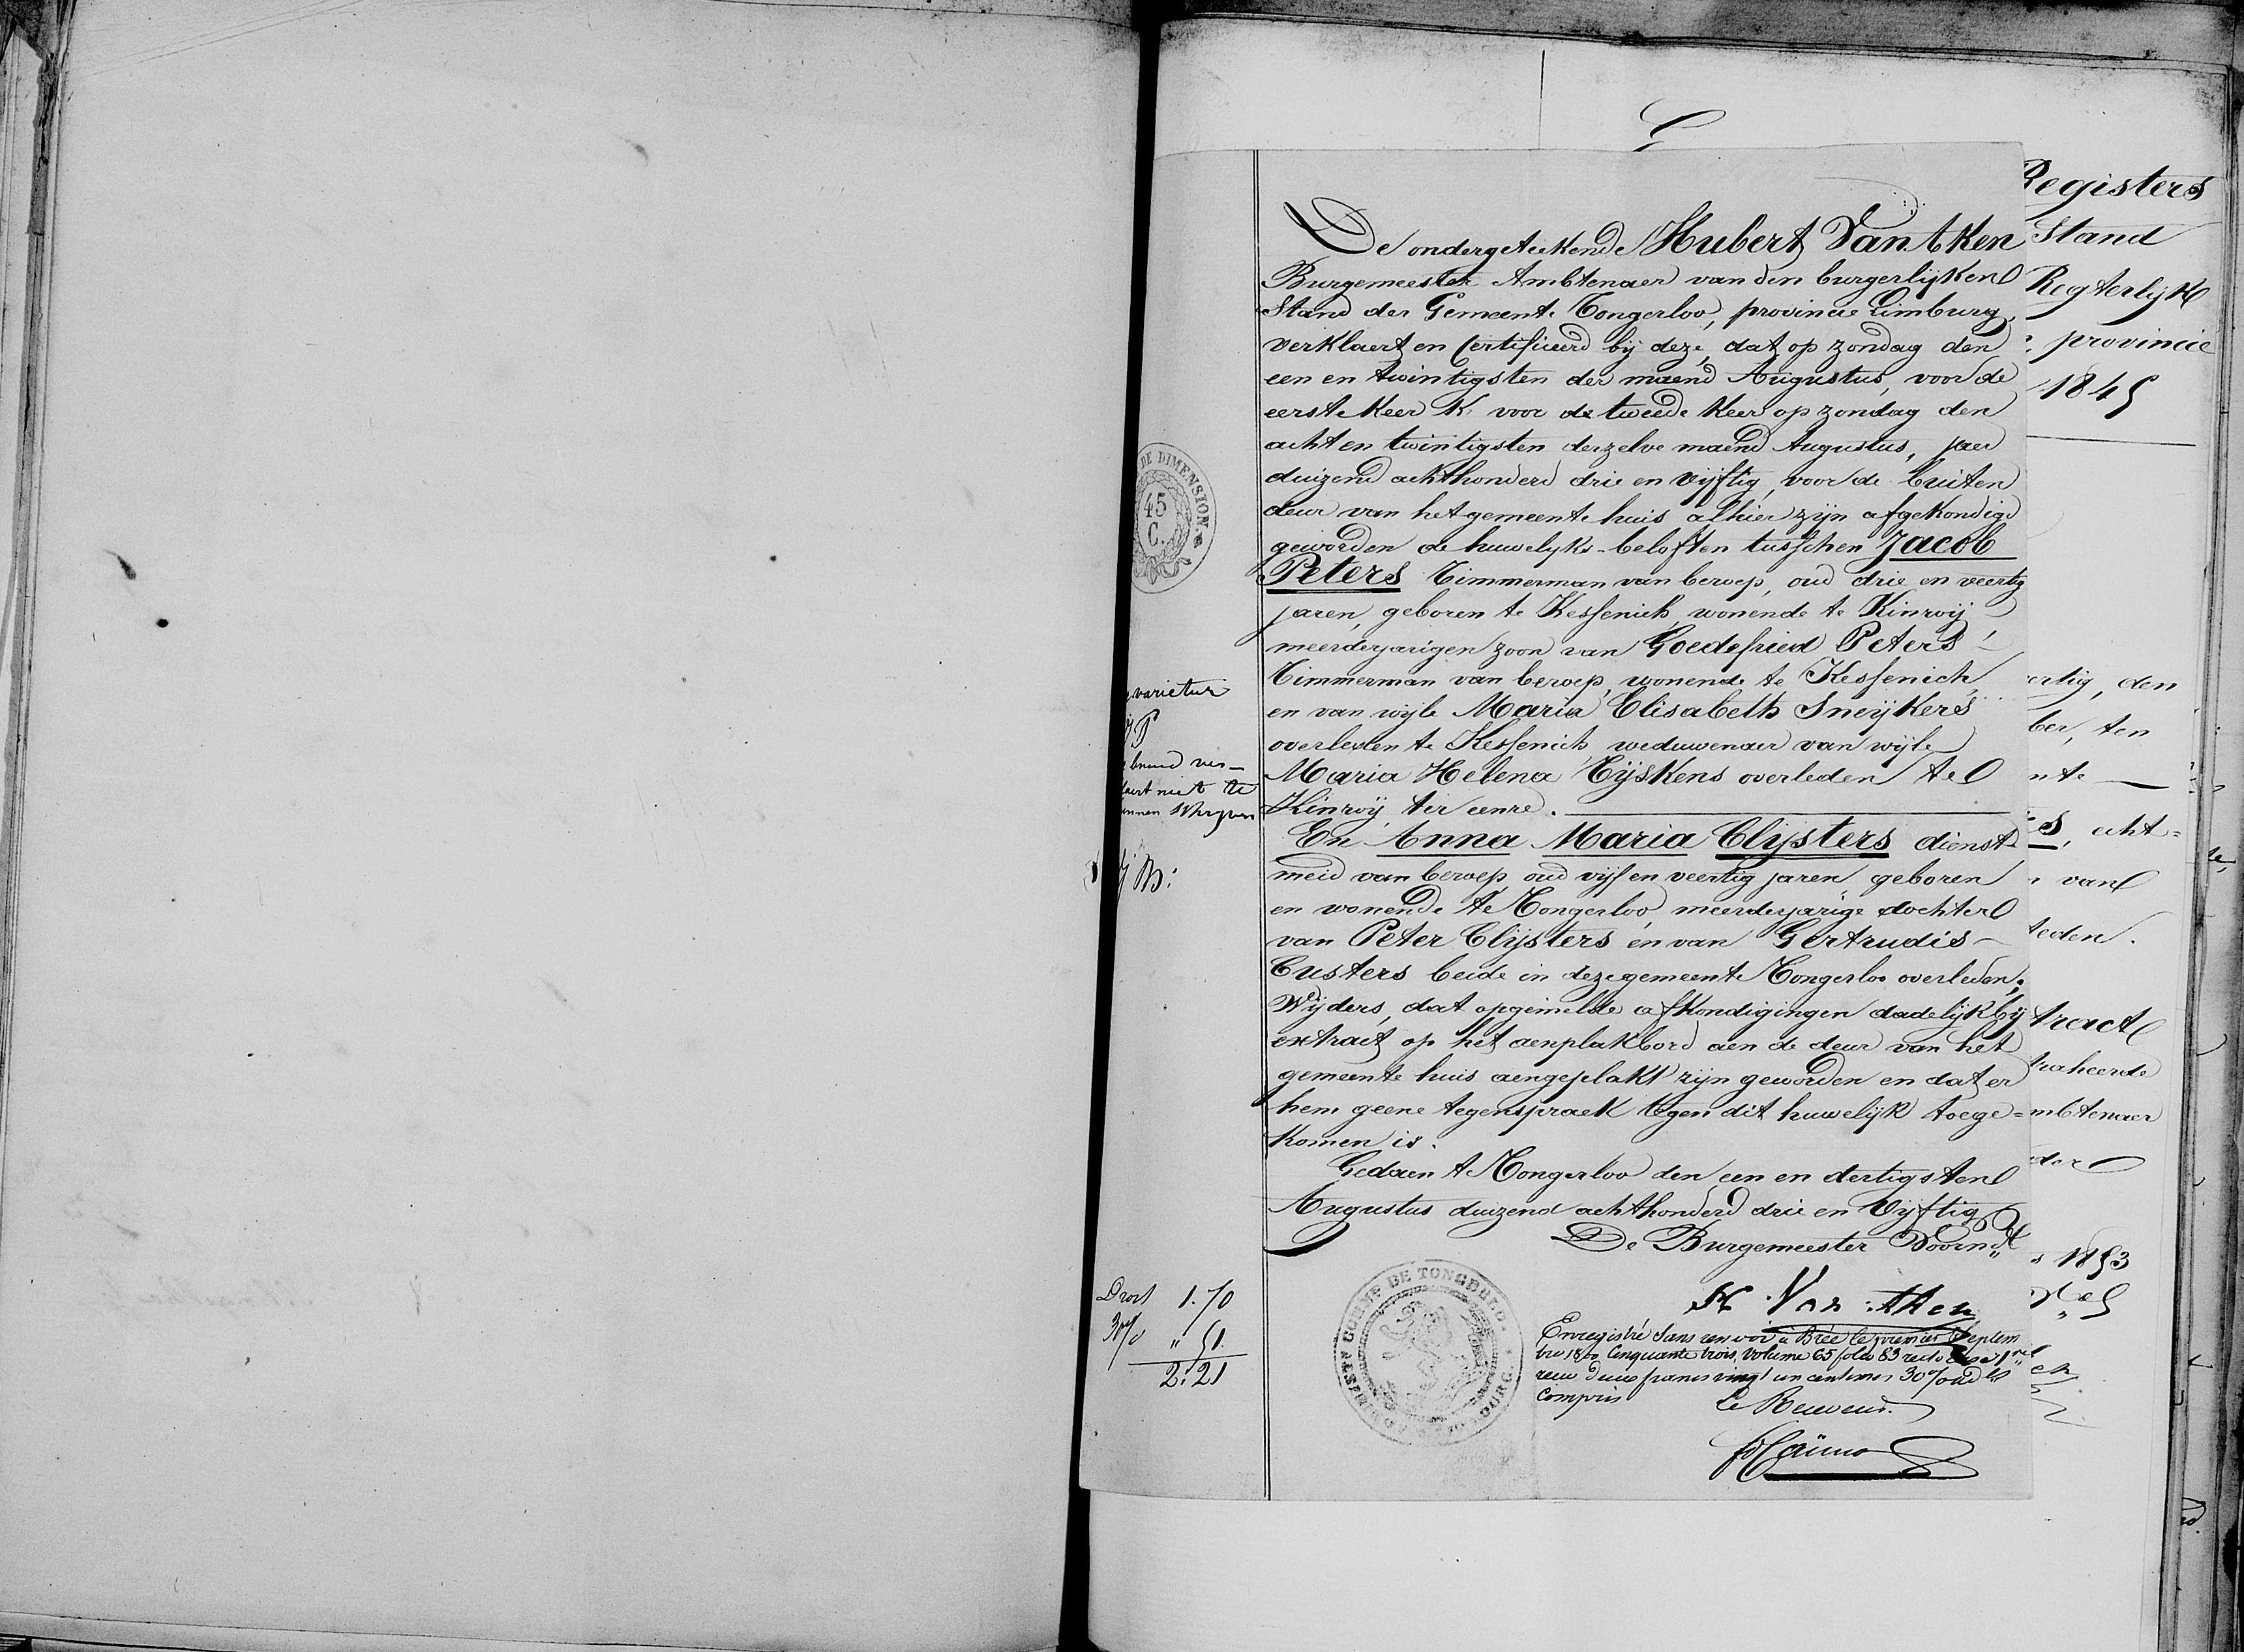 De ondergeteekende Hubert Van. t ken
Burgemeester Ambtenaer van den burgerlijken
Stand der Gemeente Tongerloo, provincie Limburg,
verklaert en Certificeerd bij deze, dat op zondag den
een en twintigsten der maend Augustus, voor de
eerste Keer & voor de tweede Keer op zondag den
acht en twintigsten derzelve maend Augustus, jaer
duizend achthonderd drie en vijftig, voor de buiten
deur van het gemeente huis alhier zijn afgekondigd
geworden de huwelyks-beloften tusschen Jacob
Peters Timmerman van beroep, oud drie en veertig
jaren, geboren te Kessenich, wonende te Kinroij
meerderjarigen zoon van Goedefried Peters
Timmerman van beroep, wonende te Kessenich,
en van wijle Maria Elisabeth Sneijkers
overleden te Kessenich weduwenaer van wijle
Maria Helena Tijskens overleden te
Kinroij, ter eenre.
En Anna Maria Clijsters dienst
meid van beroep oud vijf en veertig jaren, geboren
en wonende te Tongerloo meerderjarige dochter
van Peter Clijsters en van Gertrudis
Custers beide in deze gemeente Tongerloo overleden;
Wijders, dat opgemelde afkondigingen dadelijk bij
extract op het aenplakbord aen de deur van het
gemeente huis aengeplakt zijn geworden en dat er
hem geene tegenspraek tegen dit huwelijk toege=
komen is.
Gedaen te Tongerloo den een en dertigsten
Augustus duizend achthonderd drie en Vijftig
De Burgemeester Voornd
H Van . tken
Enregistré sans renvoi à Brée le premier Septem
bre 1800 Cinquante trois, volume 65 folio 83 recto Case 1re
reçu deux francs vingt un centimes 30 % addls
compris
Le Receveur.
DE DIMENSION.
45
C.
varietur
brund ver-
laert niet te
ennen Schryven
Droit 1.70
30% " 51
2.21
COMMNE DE TONGERLOO
LIMBOURG
Registers
Stand
Regterlyk
provincie
1845
ertig, den
ber, ten
nte
s, acht=
van
leden.
tract
traheerde
mbtenaer
der
1853